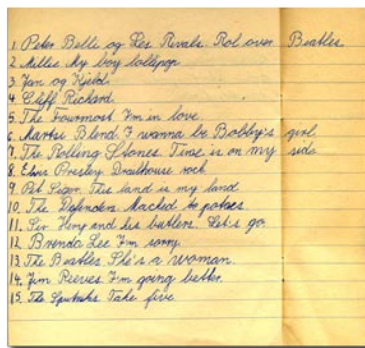 1. Peter Belli og Les Rivals. Rol over Beatles
2. Millie My boy lollipop
3 Jan og Kjeld.
4. Cliff Richard.
5. The Fourmost I'm in love.
6. Martsi Blend I wanna be Bobby's girl.
7. The Rolling Stones. Time is on my side
8. Elvis Presley. Drailhouse rock
9. Pet Seger. This land is my land
10. The Defenders Macked be potoes.
11. Sir Henry and his butlers. Let's go.
12. Brenda Lee I'm sorry.
13. The Beatles She's a woman.
14. Jim Reeves I'm going better.
15. The Sputniks Take five